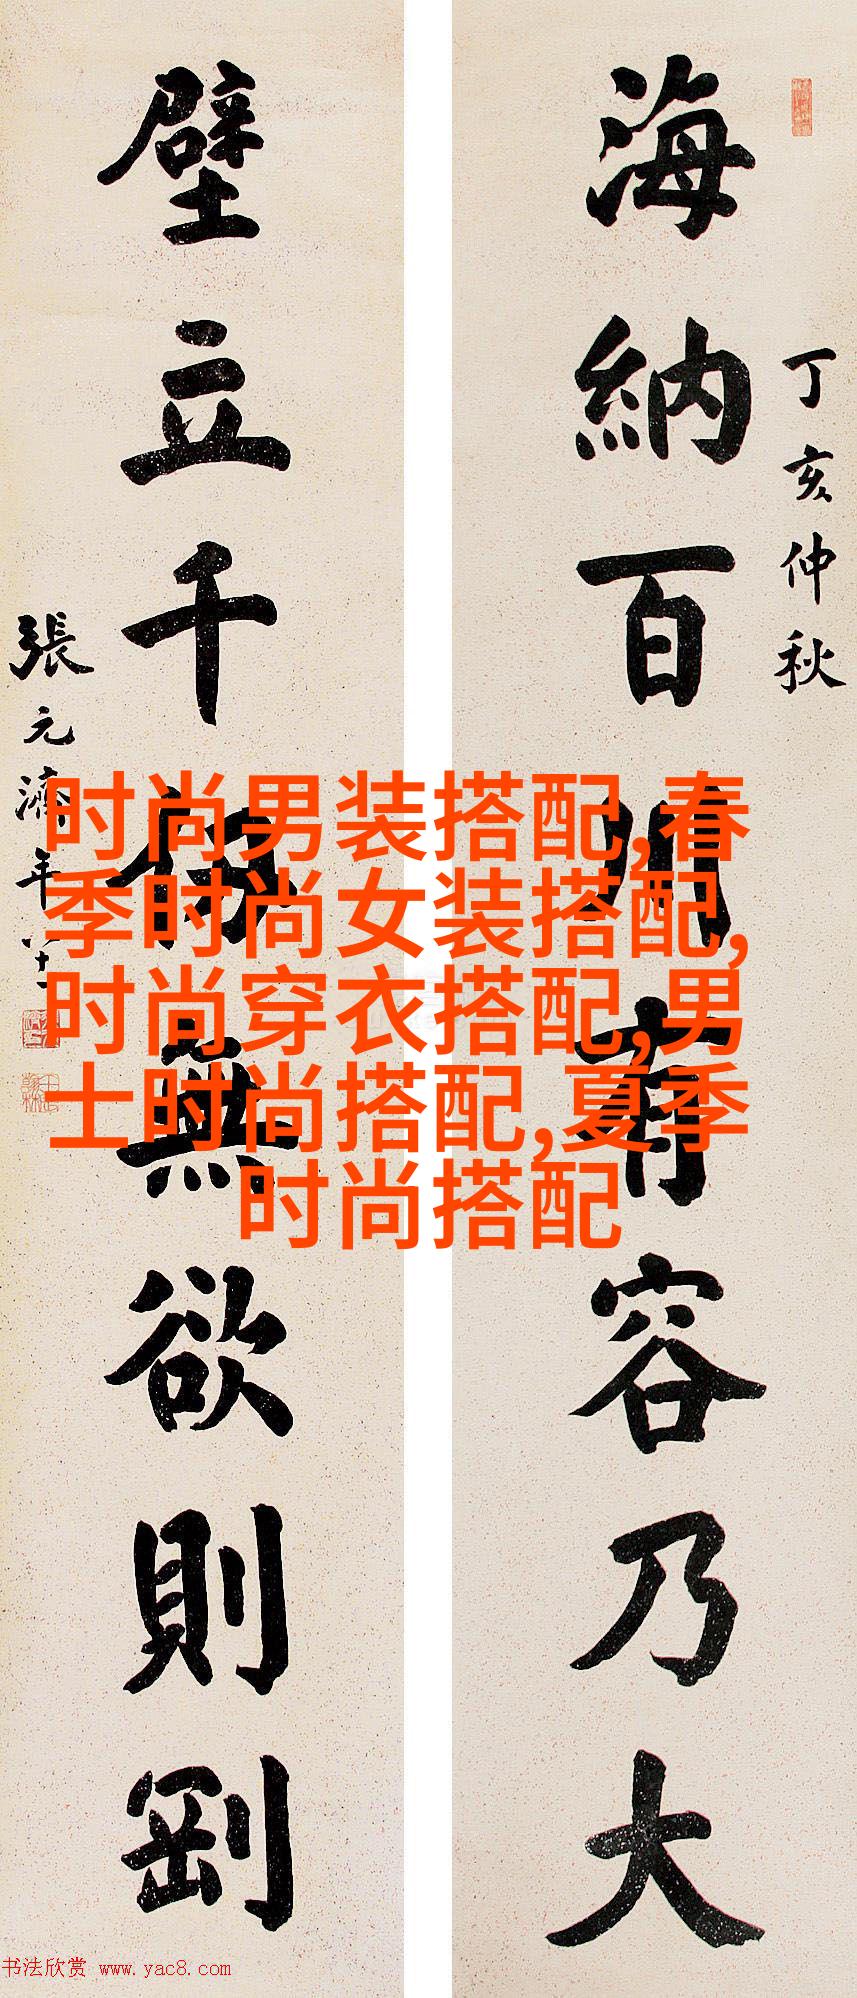 海納百川有容乃大
丁亥仲秋
壁立千仞無欲則剛
張元濟年八十一
时尚男装搭配,春
季时尚女装搭配,
时尚穿衣搭配,男
士时尚搭配,夏季
时尚搭配
书法欣赏 www.yac8.com